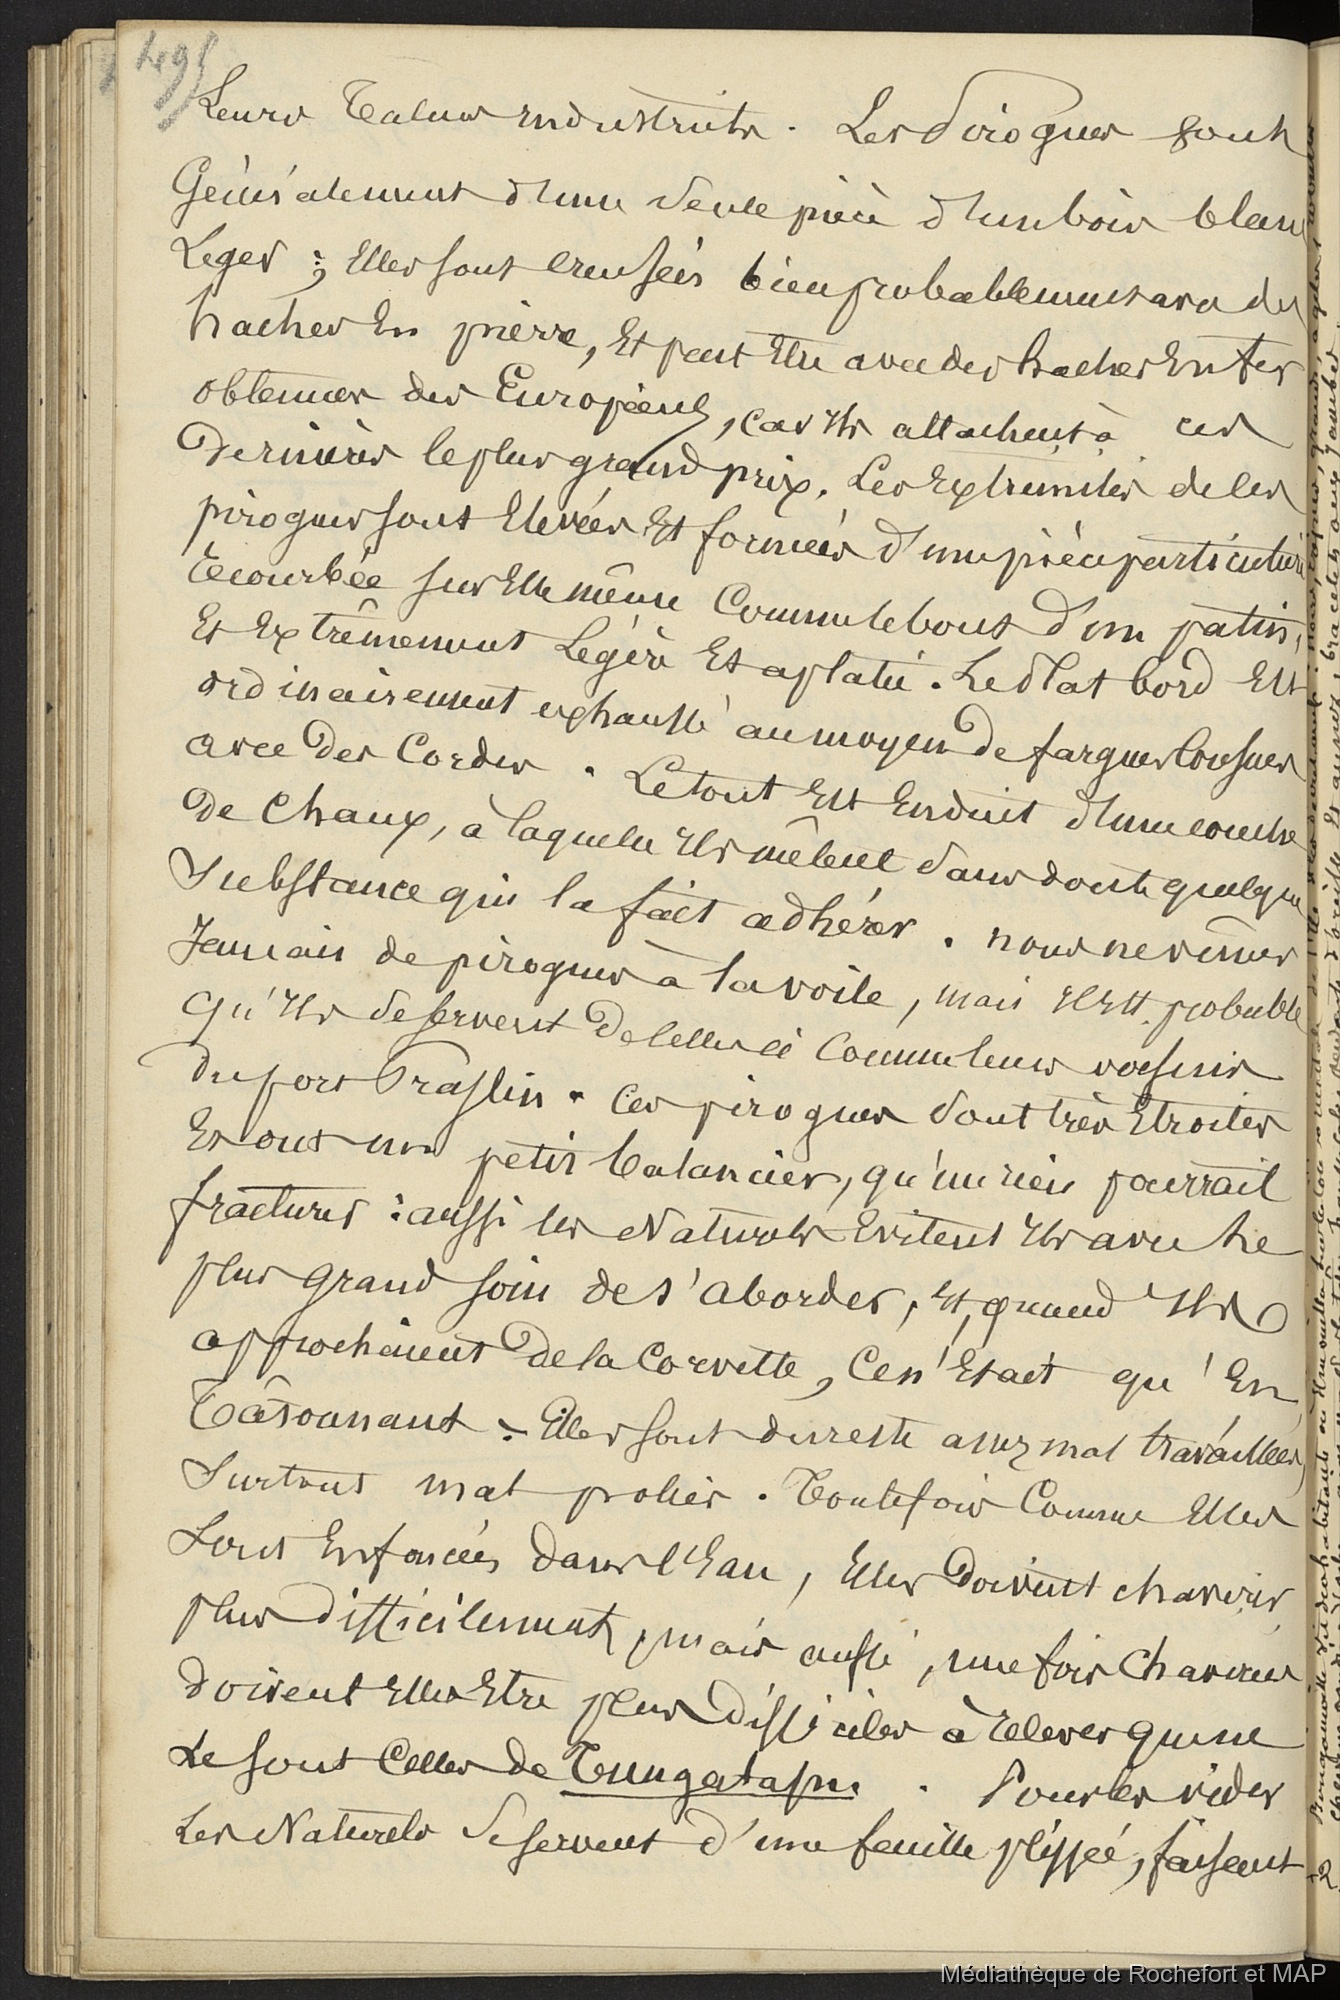 495
Leurs Talens industriels. Les Pirogues sont
Généralement d'une seule pièce d'un bois blanc
Leger ; Elles sont creusées bien probablement avec des
haches En pierre, Et peut Etre avec des haches En fer
obtenues des Européens, car Ils attachent à ces
Dernières le plus grand prix. Les Extremités de les
pirogues sont Elevées Et formées d'une pièce particulière
Recourbée sur Elle même Comme le bout d'un patin,
Et Extrêmement Légère Et aplatie. Le Plat bord Est
ordinairement exhaussé au moyen De fargues Cousues
avec Des Cordes. Le tout Est Enduit d'une couche
De Chaux, à laquelle Ils mêlent sans doute quelque
Substance qui la fait adhérer. nous ne vimes
Jamais de pirogues à la voile, mais Il Est probable
qu'Ils se servent De Celles ci Comme leurs voisins
Du port Praslin. Ces pirogues sont très Etroites
Et ont un petit balancier, qu'un rien pourrait
fracturer : aussi les Naturels Evitent Ils avec le
plus Grand soin de s'aborder, Et, quand Ils
approchaient De la Corvette, Ce n'Etait qu'En
Tâtonnant. Elles sont du reste assez mal travaillées,
Surtout mal polies. Toutefois Comme Elles
sont Enfoncées dans l'Eau, Elles Doivent chavirer
plus Difficilement, mais aussi, une fois Chavirées
doivent Elles Etre plus Difficiles à Relever que ne
Le sont Celles De Tongatapu. Pour les vider
Les Naturels Se servent d'une feuille plissée, faisant
Médiathèque de Rochefort et MAP